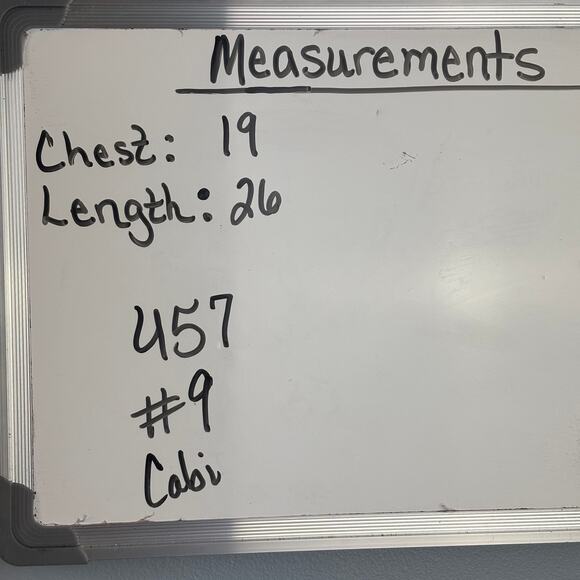 Measurements
Chest: 19
Length: 26
457
#9
Cabi